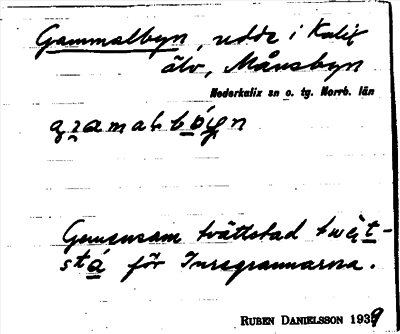 Gammalbyn, udde i Kalix
älv, Månsbyn
Nederkalix sn o. tg. Norrb. län
Gemensam tvättstad twèt-
stá för Inregrannarna.
RUBEN DANIELSSON 1939